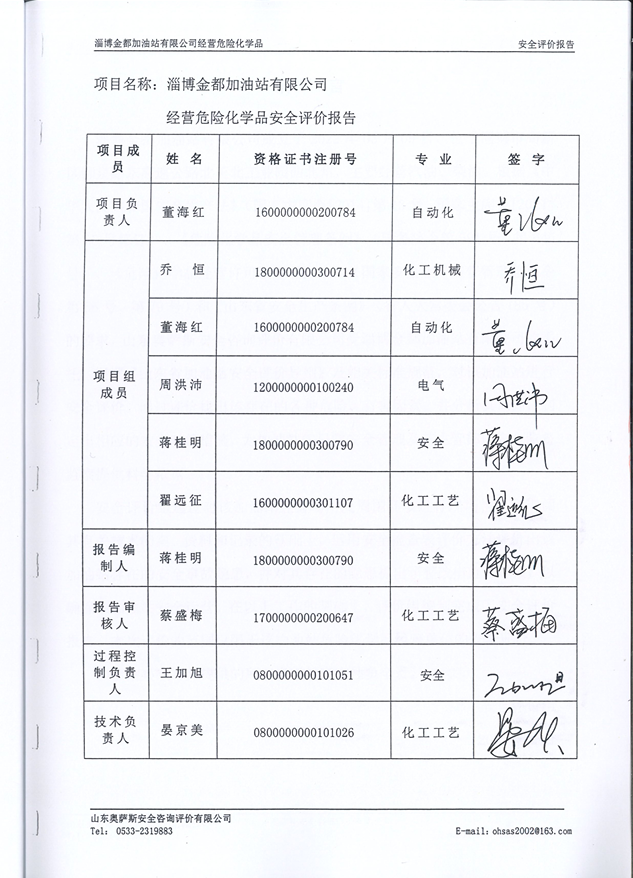 淄博金都加油站有限公司经营危险化学品 安全评价报告
项目名称：淄博金都加油站有限公司
经营危险化学品安全评价报告
项目成员 姓 名 资格证书注册号 专 业 签 字
项目负责人 董海红 1600000000200784 自动化 董海红
项目组成员 乔 恒 1800000000300714 化工机械 乔恒
董海红 1600000000200784 自动化 董海红
周洪沛 1200000000100240 电气 周洪沛
蒋桂明 1800000000300790 安全 蒋桂明
翟远征 1600000000301107 化工工艺 翟远征
报告编制人 蒋桂明 1800000000300790 安全 蒋桂明
报告审核人 蔡盛梅 1700000000200647 化工工艺 蔡盛梅
过程控制负责人 王加旭 0800000000101051 安全
技术负责人 晏京美 0800000000101026 化工工艺
山东奥萨斯安全咨询评价有限公司
Tel： 0533-2319883 E-mail：ohsas2002@163.com